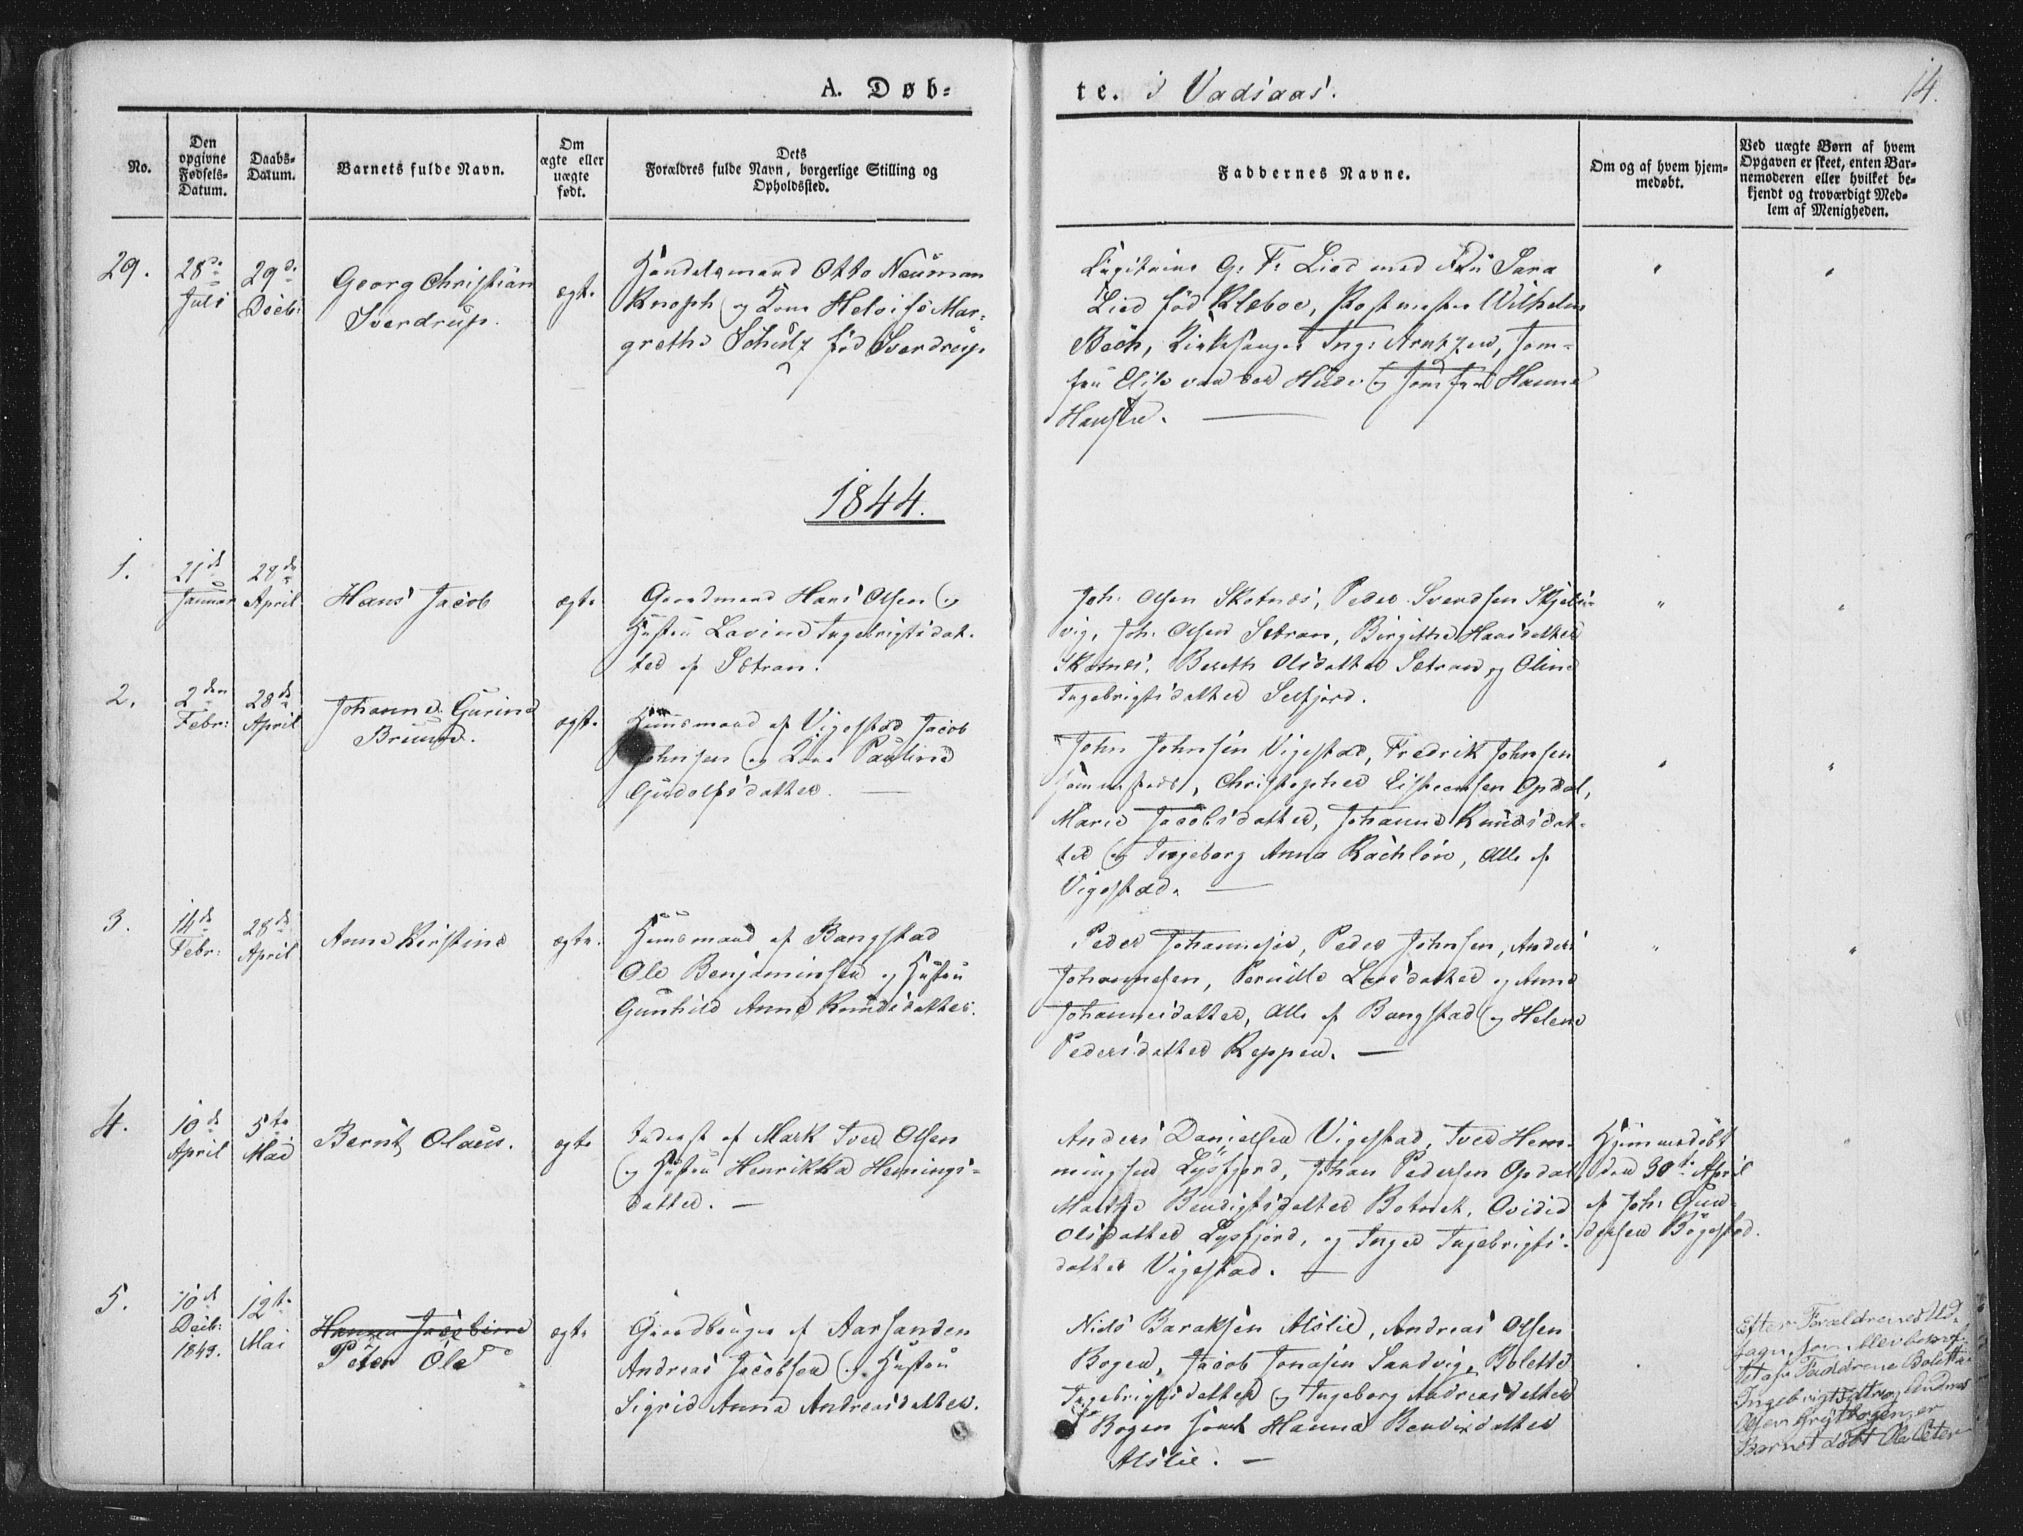 A. Døb=
te. i Vadsaas.
14.
No.
Den opgivne Fødsels-Datum.
Daabs-Datum.
Barnets fulde Navn.
Om ægte eller uægte født.
Dets Forældres fulde Navn, borgerlige Stilling og Opholdssted.
Faddernes Navne.
Om og af hvem hjemmedøbt.
Ved uægte Børn af hvem Opgaven er skeet, enten Barnemoderen eller hvilket bekjendt og troværdigt Medlem af Menigheden.
29.
28de Juli
29de Decbr:
Georg Christian
Sverdrup.
ægte
Handelsmand Otto Neuman
Knoph og Kone Heloise Mar-
grethe Schulz fød Sverdrup
G: F: Lied med Fru Sara
Lied fød Klæboe, Postmester Wilhelm
Bech, Kirkesanger Ing: Arntzen, Jom-
fru Elise van der Hude og Jomfru Hanna
Hansen.
1844.
1.
21de Januar
28de April
Hans Jacob
ægte
Gaardmand Hans Olsen og
Hustru Lavine Ingebrigtsdat-
ter af Sætran.
Joh: Olsen Skotnes, Peder Svendsen Skjels-
vig, Joh: Olsen Sætran, Birgitha Hansdatter
Skotnes, Bereth Olsdatter Sætran og Oline
Ingebrigtsdatter Selfjord.
2.
2den Febr:
28de April
Johanna Gurine
Bruun.
ægte
Huusmand af Vigestad Jacob
Johnsen og Kone Pauline
Gudolfsdatter.
John Johnsen Vigestad, Fredrik Johnsen
Christopher Espensen Opdal,
Marie Jacobsdatter, Johanna Knudsdat-
ter og Ingeborg Anna Rachløw, Alle af
Vigestad.
3.
14de Febr:
28de April
Anne Kirstine
ægte.
Huusmand af Bangstad
Ole Benjaminsen og Hustru
Gunhild Anna Knudsdatter.
Peder Johannesen, Peder Johnsen, Anders
Johannesen, Pernille Larsdatter og Anne
Johannesdatter, Alle af Bangstad og Helene
Pedersdatter Reppen.
4.
10de April
5te Mai
Bernt Olaus.
ægte
Inderst af Mark Iver Olsen
og Hustru Henrikka Hemings-
datter.
Anders Danielsen Vigestad, Iver Hem-
mingsen Lysfjord, Johan Pedersen Opdal,
Martha Bendigtsdatter Botnet, Ovidia
Olsdatter Lysfjord, og Inger Ingebrigts-
datter Vigestad.
Hjemmedøbt
den 30te April
af Joh: Gun-
dersen Bøgestad.
5.
10de Decbr: 1843.
12te Mai
Hanna Jacobine
Peter Ole
ægte
Gaardbruger af Aarsanden
Andreas Jacobsen og Hustru
Sigrid Anna Andreasdatter.
Niels Baraksen Alslie, Andreas Olsen
Bogen, Jacob Jonasen Sandvig, Boletta
Ingebrigtsdatter og Ingeborg Andreasdatter
Bogen samt Hanna Bendixdatter
Alslie.
Efter Forældrenes Ud-
sagn, som blev bekræf-
tet af Fadderne Boletta
Ingebrigtsdtr og Andreas
Olsen er
Barnet døbt Ole Peter